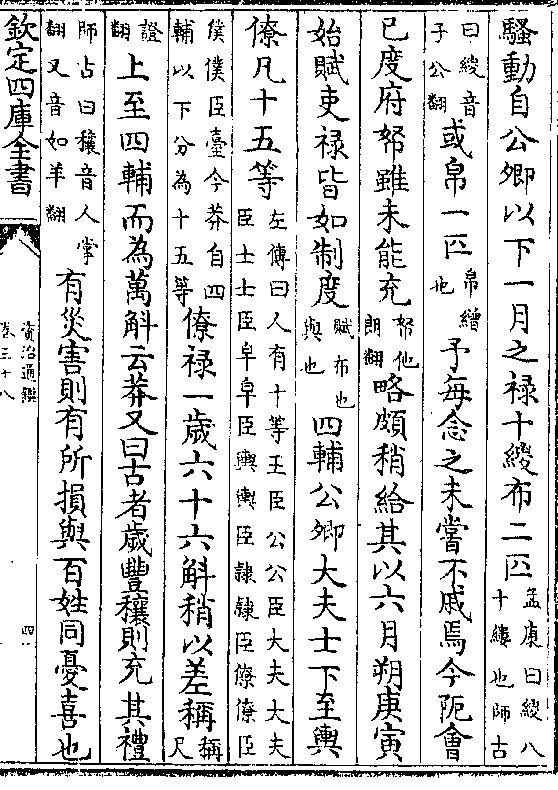 騷動自公卿以下一月之禄十緵布二匹孟康曰緵八十縷也師古
曰緵音子公翻或帛一匹帛繒也予每念之未嘗不戚焉今阨會
已度府帑雖未能充帑他朗翻略頗稍給其以六月朔庚寅
始賦吏禄皆如制度賦布也與也四輔公卿大夫士下至輿
僚凡十五等左傳曰人有十等王臣公公臣大夫大夫臣士士臣皁皁臣輿輿臣隸隸臣僚僚臣
僕僕臣臺今莽自四輔以下分為十五等僚禄一歲六十六斛稍以差稱稱尺
證翻上至四輔而為萬斛云莽又曰古者歲豐穰則充其禮
師占曰穰音人掌翻又音如羊翻有災害則有所損與百姓同憂喜也
欽定四庫全書
資治通鑑
卷三十八
四